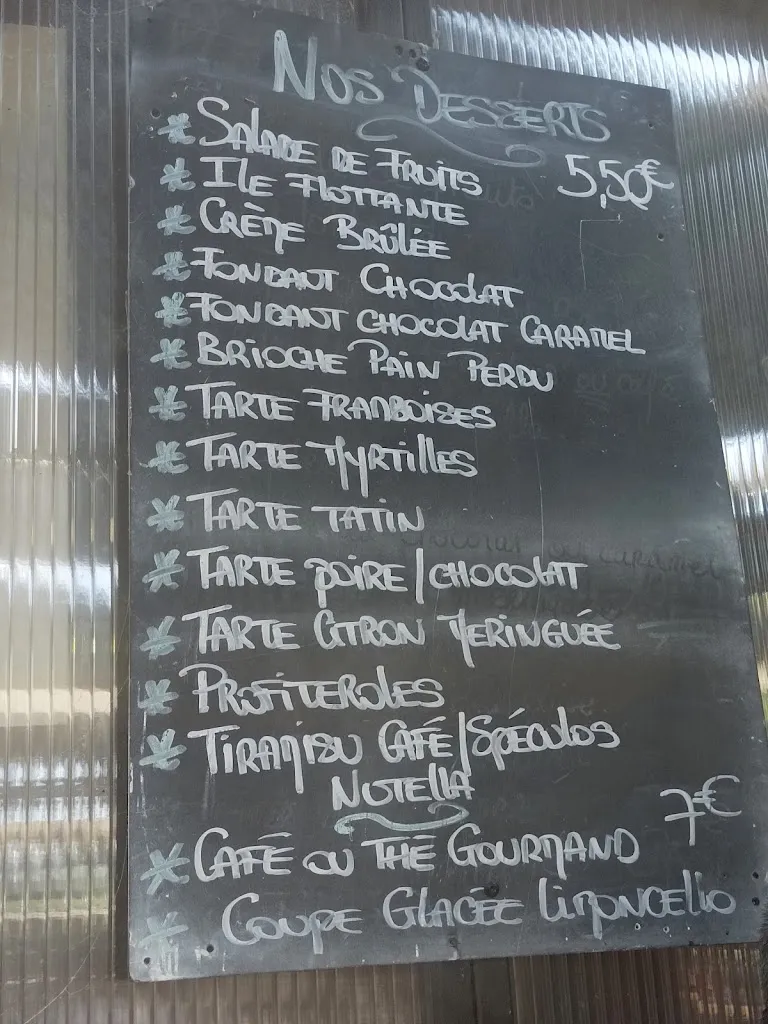 NOS DESSERTS
* SALADE DE FRUITS 5,50€
* ILE FLOTTANTE
* CRÈME BRÛLÉE
* FONDANT CHOCOLAT
* FONDANT CHOCOLAT CARAMEL
* BRIOCHE PAIN PERDU
* TARTE FRAMBOISES
* TARTE MYRTILLES
* TARTE TATIN
* TARTE POIRE/CHOCOLAT
* TARTE CITRON MERINGUÉE
* PROFITEROLES
* TIRAMISU CAFÉ/SPÉCULOS
NUTELLA
7€
* CAFÉ OU THÉ GOURMAND
* COUPE GLACÉE LIMONCELLO